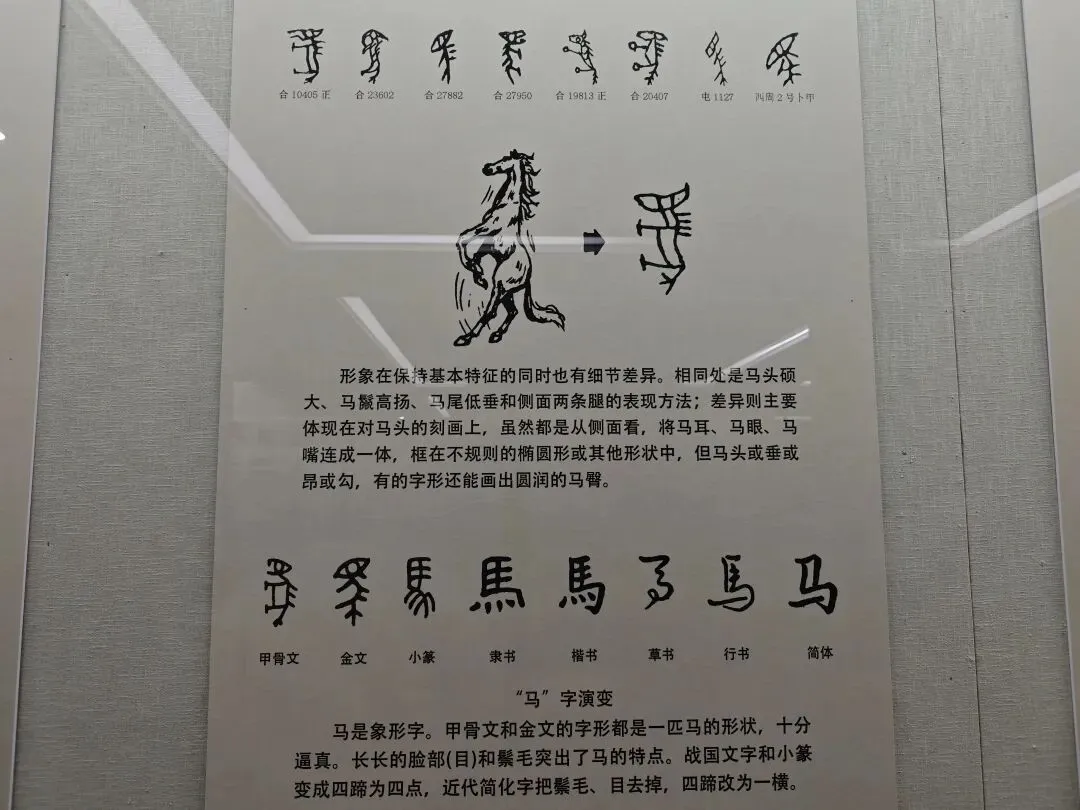 合 10405 正 合 23602 合 27882 合 27950 合 19813 正 合 20407 屯 1127 西周 2 号卜甲
形象在保持基本特征的同时也有细节差异。相同处是马头硕
大、马鬣高扬、马尾低垂和侧面两条腿的表现方法；差异则主要
体现在对马头的刻画上，虽然都是从侧面看，将马耳、马眼、马
嘴连成一体，框在不规则的椭圆形或其他形状中，但马头或垂或
昂或勾，有的字形还能画出圆润的马臀。
馬 馬 馬 马
甲骨文 金文 小篆 隶书 楷书 草书 行书 简体
“马”字演变
马是象形字。甲骨文和金文的字形都是一匹马的形状，十分
逼真。长长的脸部(目)和鬃毛突出了马的特点。战国文字和小篆
变成四蹄为四点，近代简化字把鬃毛、目去掉，四蹄改为一横。